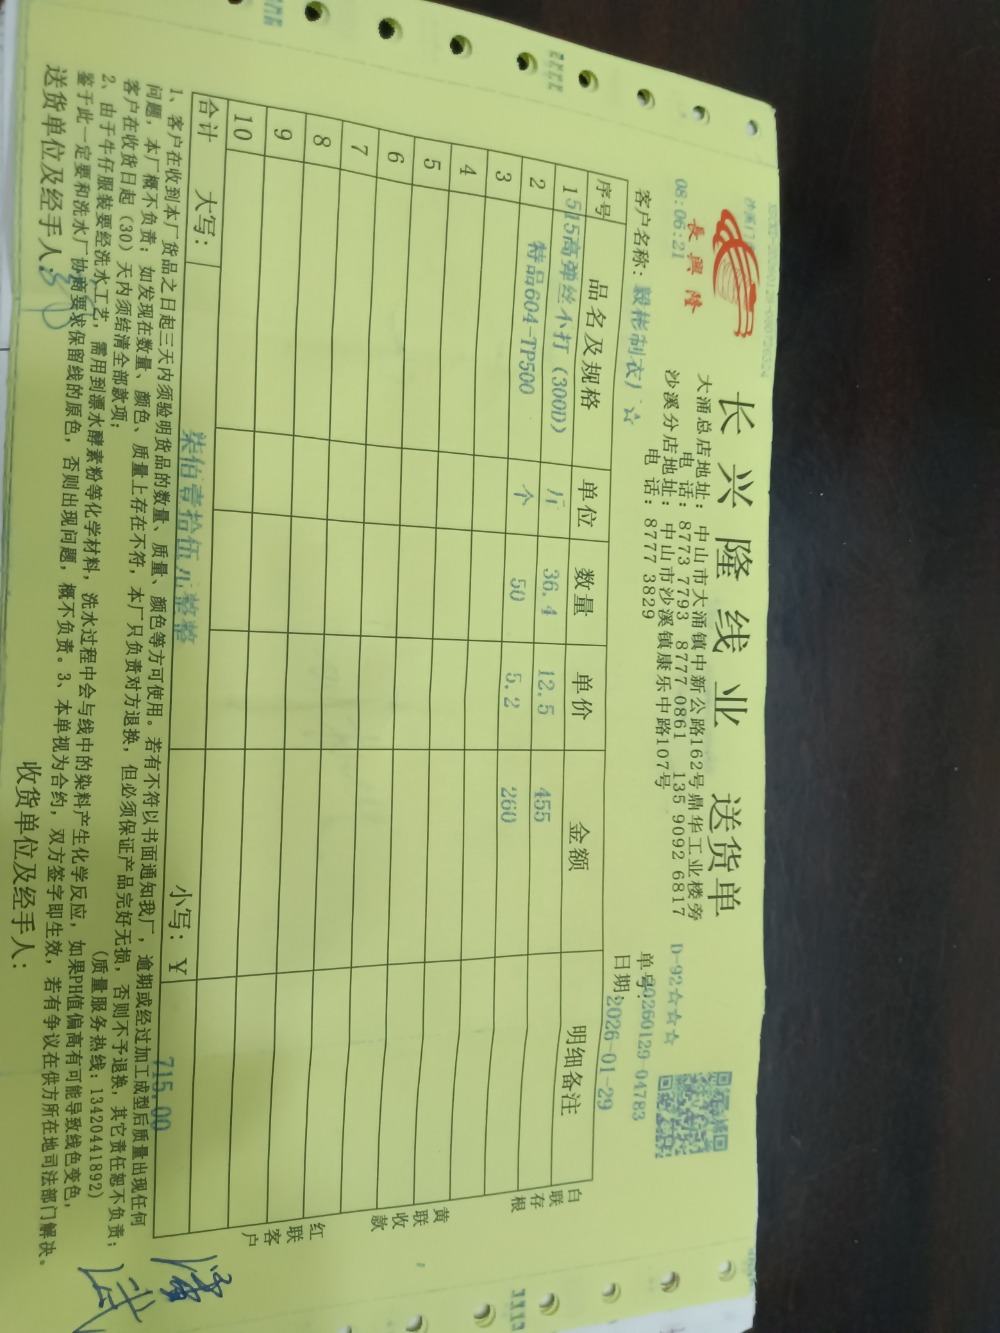 08:06:21
長興隆
长兴隆线业 送货单
大涌总店地址：中山市大涌镇中新公路162号鼎华工业楼旁
电话：8773 7793 8777 0861 135 9092 6817
沙溪分店地址：中山市沙溪镇康乐中路107号
电话：8777 3829
D-92☆☆☆
单号:20260129-04783
客户名称：毅彬制衣厂☆
日期:2026-01-29
序号 品名及规格 单位 数量 单价 金额 明细备注
1 515高弹丝不打（300D） 斤 36.4 12.5 455
2 特品604-TP500 个 50 5.2 260
3
4
5
6
7
8
9
10
合计 大写： 柒佰壹拾伍元整整 小写：￥ 715.00
白联存根
黄联收款
红联客户
1、客户在收到本厂货品之日起三天内须验明货品的数量、质量、颜色等方可使用。若有不符以书面通知我厂，逾期或经过加工成型后质量出现任何
问题，本厂概不负责；如发现在数量、颜色、质量上存在不符，本厂只负责对方退换，但必须保证产品完好无损，否则不予退换，其它责任恕不负责；
客户在收货日起（30）天内须结清全部款项；
(质量服务热线:13420441892)
2、由于牛仔服装要经洗水工艺，需用到漂水酵素粉等化学材料，洗水过程中会与线中的染料产生化学反应，如果PH值偏高有可能导致线色变色，
鉴于此一定要和洗水厂协商要求保留线的原色，否则出现问题，概不负责。3、本单视为合约，双方签字即生效，若有争议在供方所在地司法部门解决。
送货单位及经手人：
收货单位及经手人：